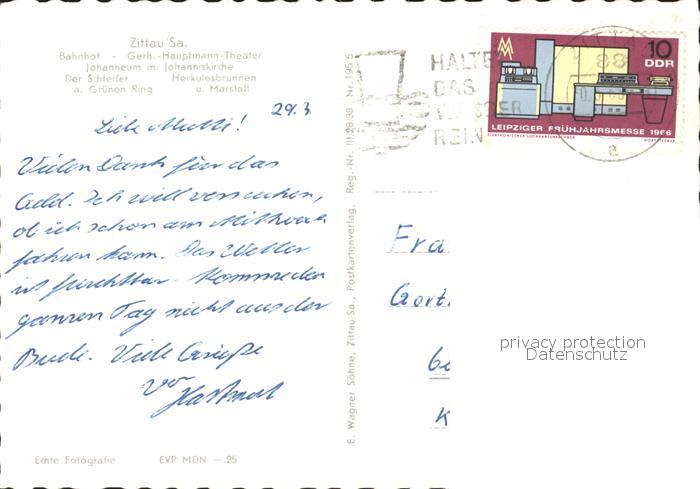 Zittau/Sa.
Bahnhof - Gerh.-Hauptmann-Theater
Johanneum m. Johanniskirche
Der Schleifer Herkulesbrunnen
a. Grünen Ring u. Marstall
29.3
Liebe Mutti!
Vielen Dank für das
Geld. Ich will versuchen,
ob ich schon am Mittwoch
fahren kann. Das Wetter
ist furchtbar. Komme den
ganzen Tag nicht aus der
Bude. Viele Grüße
von
Hartmut
Echte Fotografie EVP MDN —.25
E. Wagner Söhne, Zittau/Sa., Postkartenverlag, Reg.-Nr. III/28/38
HALTET
DAS
WASSER
REIN
10
DDR
LEIPZIGER FRÜHJAHRSMESSE 1966
ELEKTRONISCHER LOCHKARTENRECHNER
88
a
Fra
privacy protection
Datenschutz